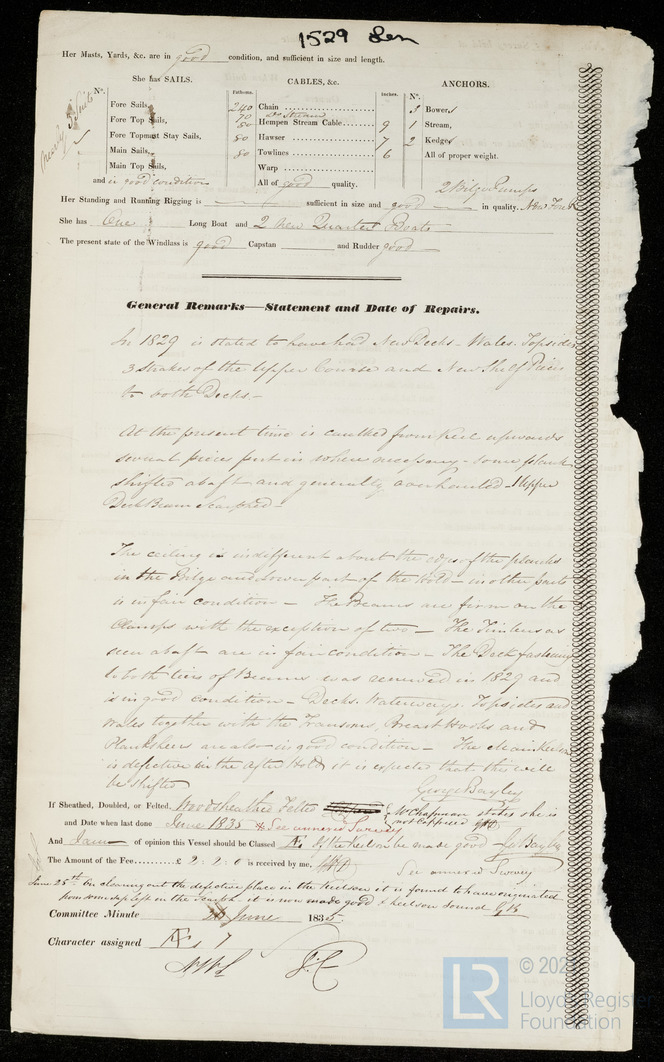 1529 Len
Her Masts, Yards, &c. are in good condition, and sufficient in size and length.
She has SAILS. CABLES, &c. ANCHORS.
N°. Fathoms. Inches. N°.
Fore Sails, 240 Chain 3 Bowers
Fore Top Sails, 70 Do Stream
80 Hempen Stream Cable 9 1 Stream,
Fore Topmast Stay Sails, 80 Hawser 7 2 Kedges
Main Sails, 80 Towlines 6 All of proper weight.
Main Top Sails, Warp
and in good conditions All of good quality. 2 Bilge Pumps
Her Standing and Running Rigging is sufficient in size and good in quality. New Fore
She has One Long Boat and 2 New Quarter Boats
The present state of the Windlass is good Capstan and Rudder good
General Remarks—Statement and Date of Repairs.
In 1829 is stated to have had New Decks - Wales. Topsides
3 strakes of the Upper Course and New Shelf Pieces
to both Decks -
At the present time is caulked from Keel upwards
several pieces put in where necessary - some plank
shifted abaft and generally overhauled - 1 Upper
Deck Beam scarphed -
The ceiling is indifferent about the edges of the planks
in the Bilge and Lower part of the Hold - in other parts
is in fair condition - The Beams are firm on the
Clamps with the exception of two - The Timbers as
seen abaft are in fair condition - The Deck fastening
to both tiers of Beams was renewed in 1829 and
is in good condition - Decks. Waterways. Topsides and
Wales together with the Transoms, Breast Hooks and
Planksheers are also in good condition - The Main Keelson
is defective in the after Hold, it is expected that this will
be shifted
George Bayley
If Sheathed, Doubled, or Felted, Wood sheathed Felted W Chapman states she is
and Date when last done June 1835 & See annexed Survey not Coppered
And I am of opinion this Vessel should be Classed Æ If the keelson be made good G Bayley
The Amount of the Fee £ 2 : 2 : 0 is received by me, See annexed Survey
June 25th On clearing out the defective place in the keelson it is found to have originated
from some sap left on the scarph. it is now made good & keelson sound GB
Committee Minute 26 June 1835.
Character assigned Æ 1
LR
© 202
Lloyd's Register
Foundation